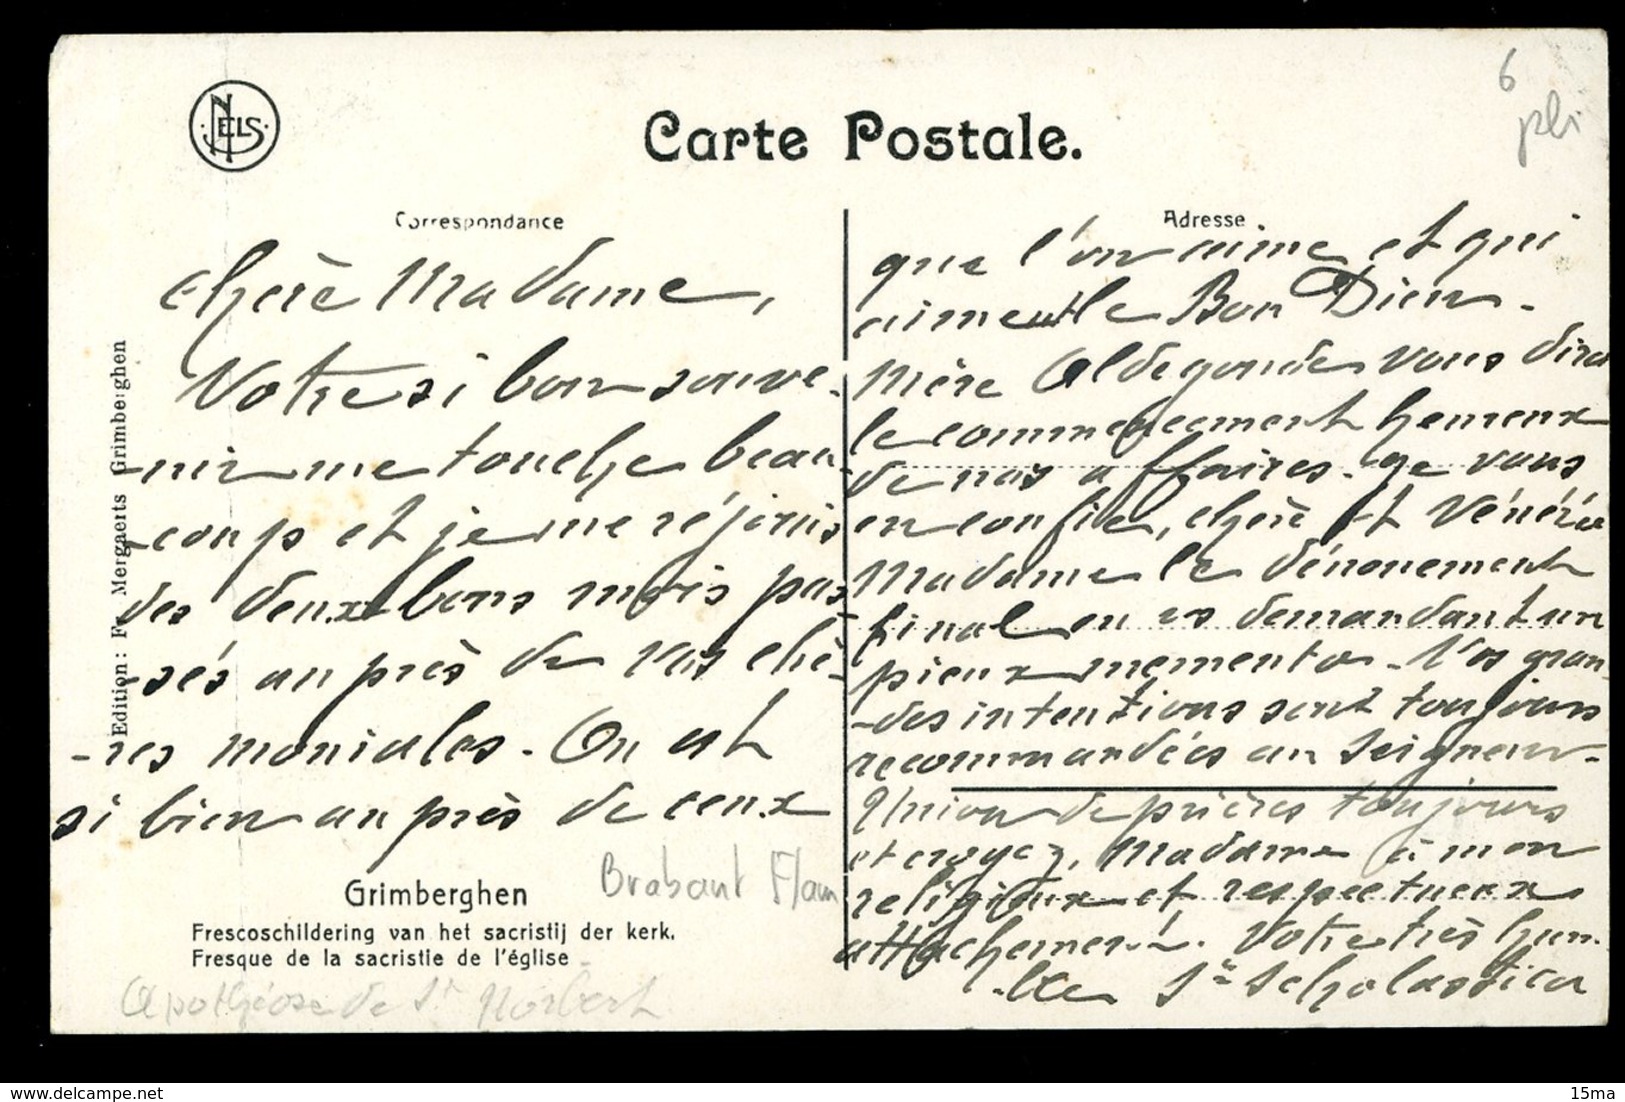 NELS
Carte Postale.
6
pli
Correspondance
chère Madame,
Votre si bon souve-
-nir me touche beau-
-coup et je me réjouis
des deux bons mois pas-
-sés auprès de vos chè-
-res moniales. On est
si bien auprès de ceux
Adresse
que l'on aime et qui
aiment le Bon Dieu.
Mère Aldegonde vous dira
le commencement heureux
de nos affaires. Je vous
en confie, chère et Vénérée
Madame le dénouement
final en vs demandant un
pieux memento. Vos gran-
-des intentions sont toujours
recommandées au Seigneur.
Union de prières toujours
et croyez, Madame à mon
religieux et respectueux
attachement. Votre très hum-
-ble Sr Scholastica
Edition: Fr. Mergaerts Grimberghen
Grimberghen
Brabant Flam
Frescoschildering van het sacristij der kerk.
Fresque de la sacristie de l'église
Apothéose de St Norbert
delcampe.net
15ma